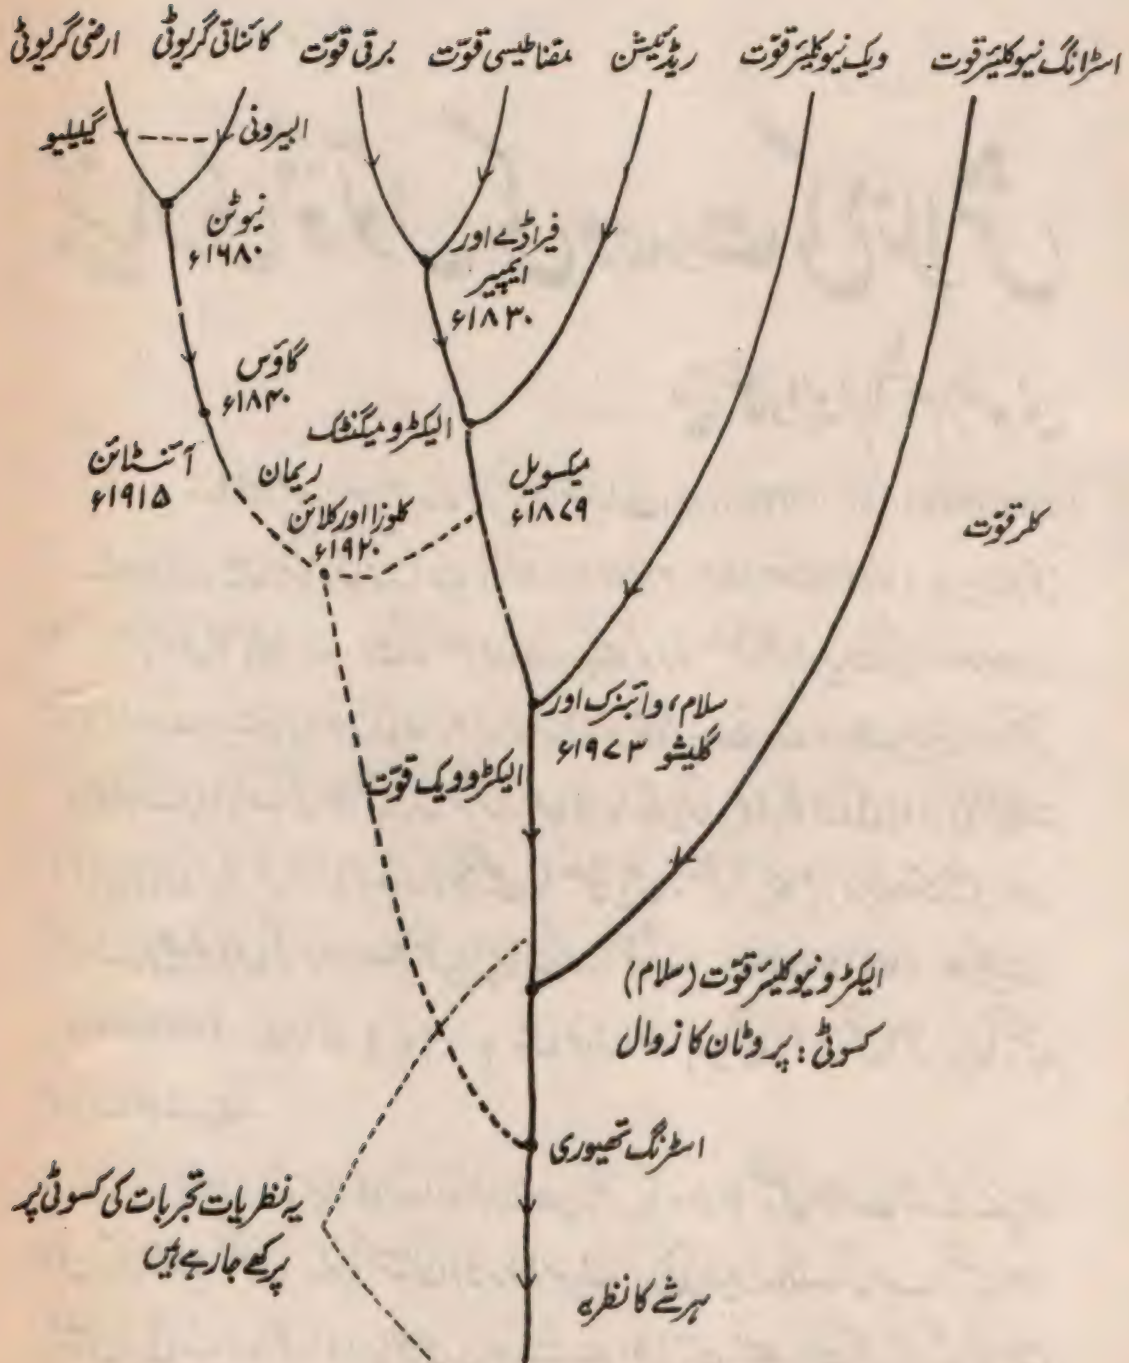 اسٹرانگ نیوکلیئر قوت
ویک نیوکلیئر قوت
ریڈئیشن
مقناطیسی قوّت
برقی قوّت
کائناتی گریوٹی
ارضی گریوٹی
البیرونی
گیلیلیو
نیوٹن
۱۶۸۰ء
فیراڈے اور
ایمپیر
۱۸۳۰ء
گاؤس
۱۸۴۰ء
الیکٹرومیگنٹک
میکسویل
۱۸۷۹ء
ریمان
آئنسٹائن
۱۹۱۵ء
کلوزا اور کلائن
۱۹۲۰ء
کلر قوّت
سلام، وائنبرک اور
گلیشو ۱۹۷۳ء
الیکٹروویک قوّت
الیکٹرونیوکلیئر قوّت (سلام)
کسوٹی: پروٹان کا زوال
اسٹرنگ تھیوری
یہ نظریات تجربات کی کسوٹی پر
پرکھے جارہے ہیں
ہر شے کا نظریہ